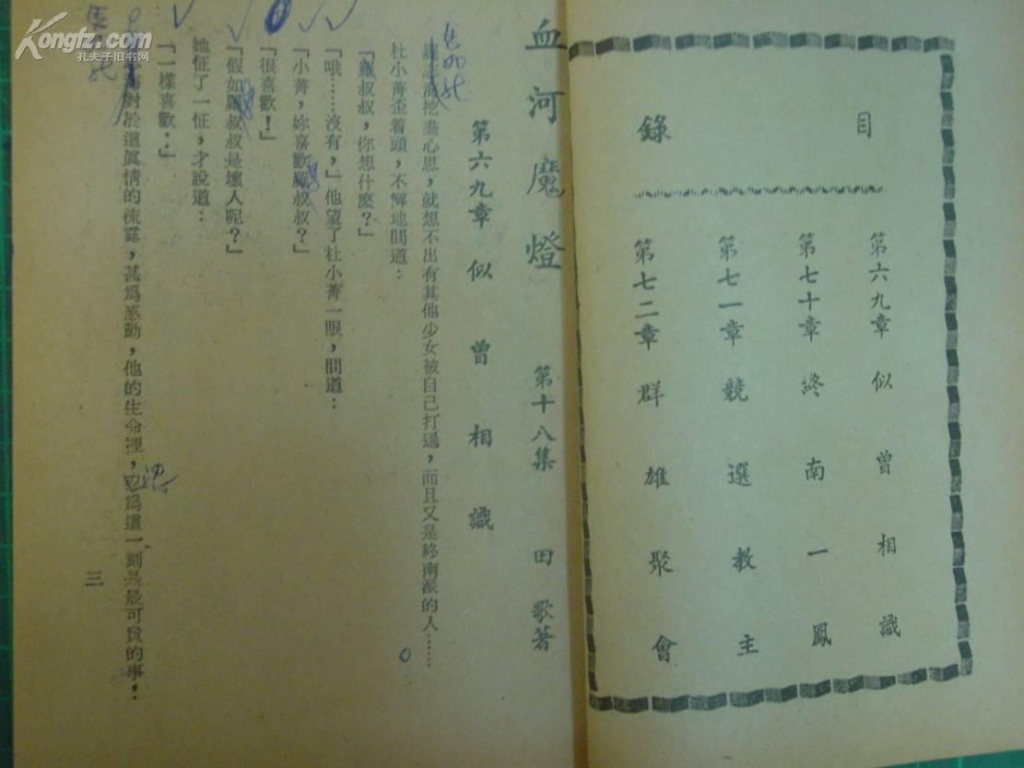 目錄
第六九章 似曾相識
第七十章 終南一鳳
第七一章 競選教主
第七二章 群雄聚會
血河魔燈 第十八集 田歌著
第六九章 似曾相識
挖盡心思，就想不出有其他少女被自己打過，而且又是終南派的人……
杜小菁歪着頭，不解地問道：
「羅叔叔，你想什麼？」
「哦……沒有，」他望了杜小菁一眼，問道：
「小菁，妳喜歡羅叔叔？」
「很喜歡！」
「假如羅叔叔是壞人呢？」
她怔了一怔，才說道：
「一樣喜歡．」
對於這眞情的流露，甚爲感動，他的生命裡，認爲這一刻是最可貴的事！
三
Kongfz.com
孔夫子旧书网